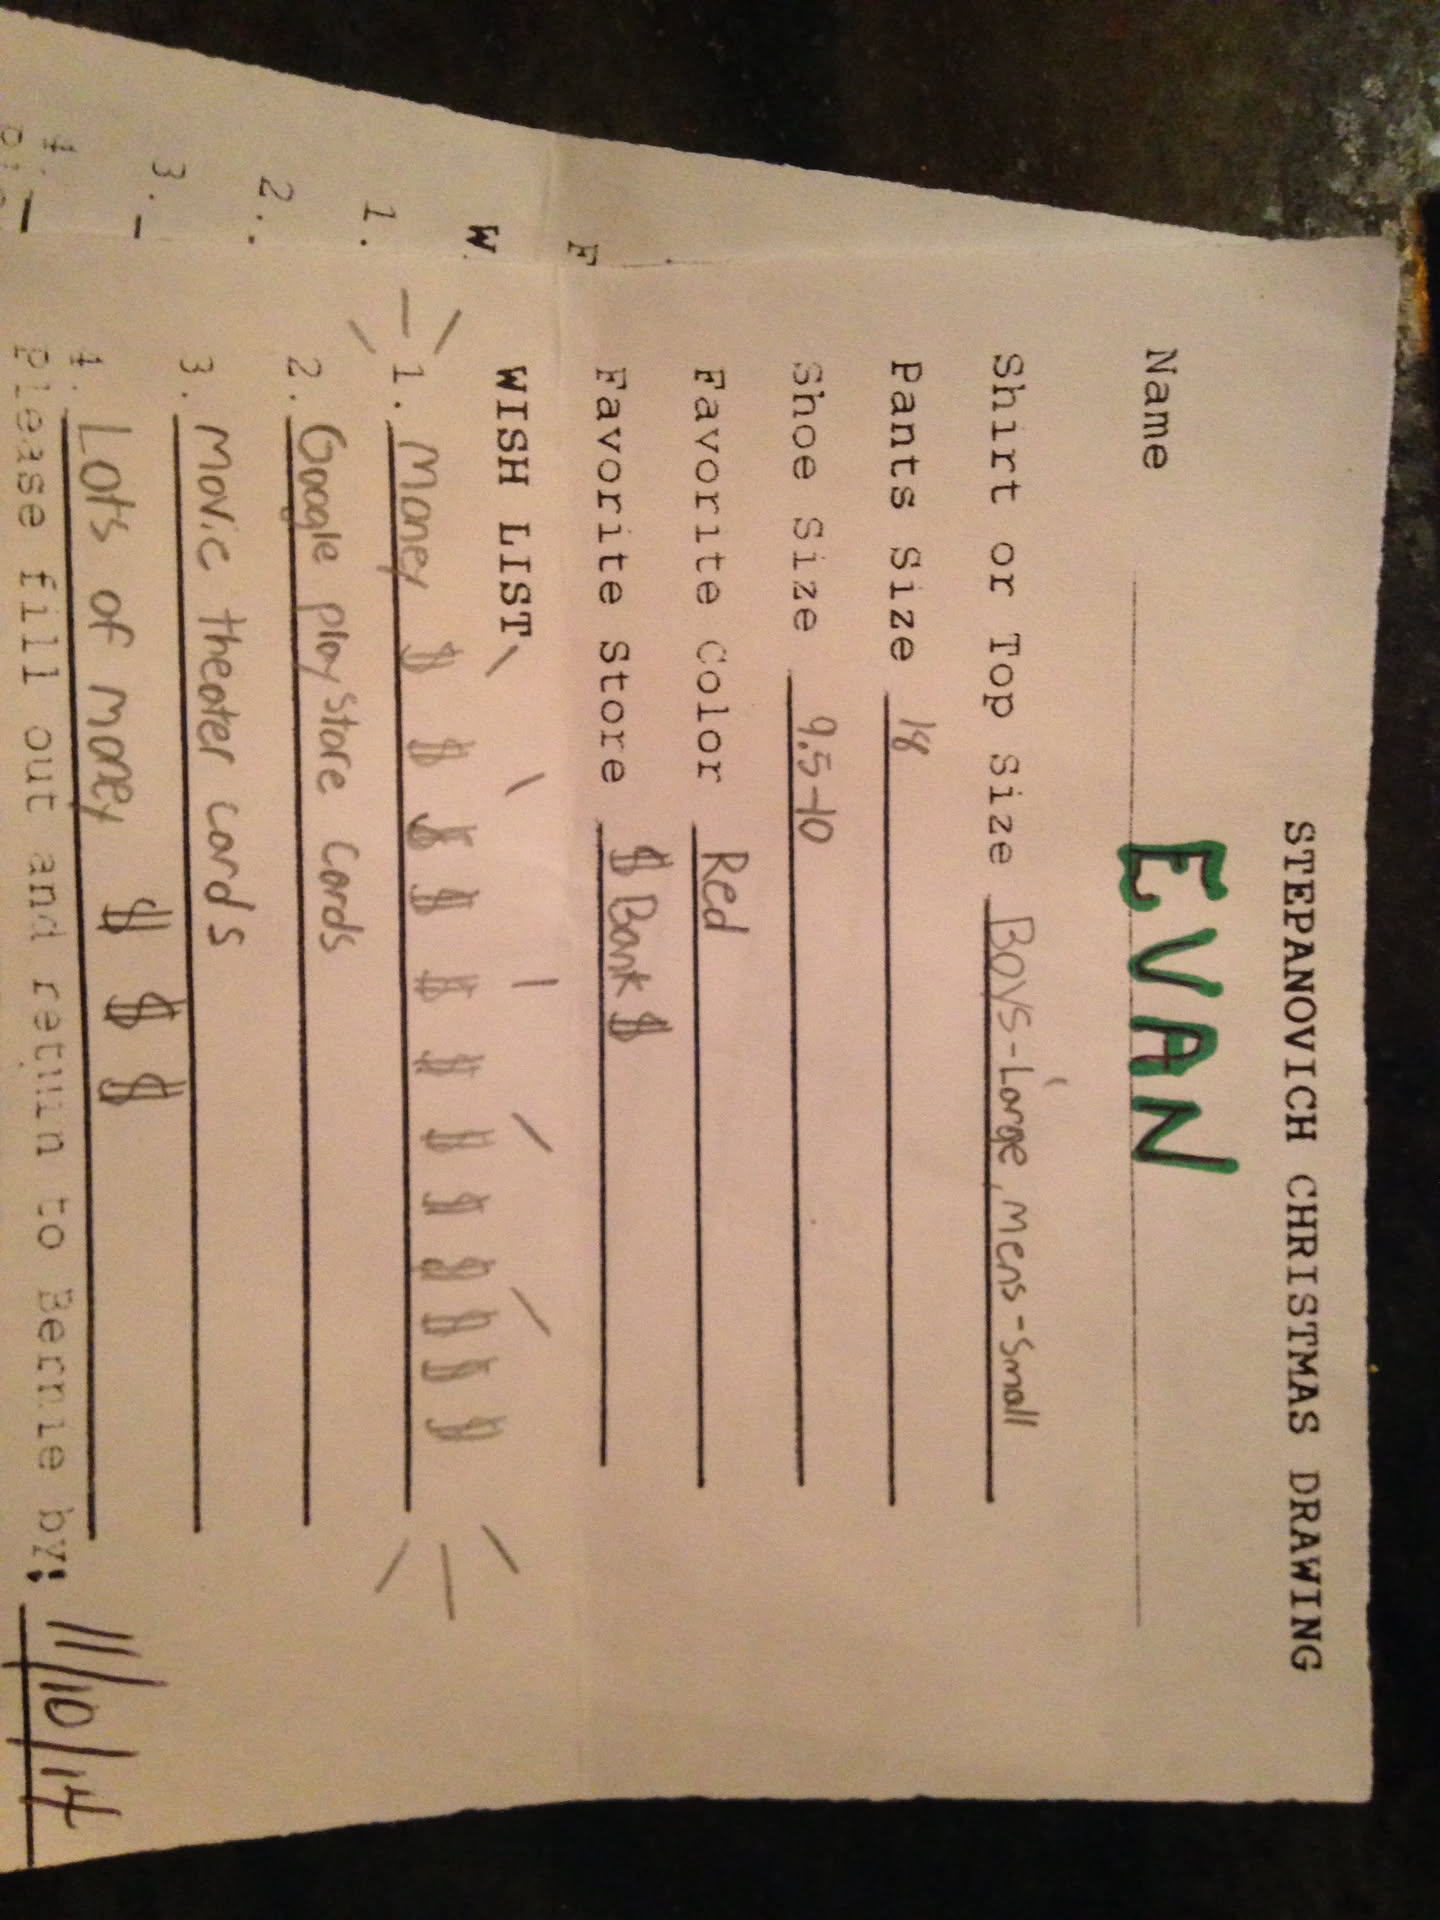 STEPANOVICH CHRISTMAS DRAWING
Name EVAN
Shirt or Top Size Boys-Large, Mens-Small
Pants Size 18
Shoe Size 9.5-10
Favorite Color Red
Favorite Store $ Bank $
WISH LIST
1. Money $ $ $ $ $ $ $ $ $ $ $ $
2. Google play store cards
3. Movie theater cards
4. Lots of money $ $ $
Please fill out and return to Bernie by: 11/10/14
F
W
1.
2.
3.
4.